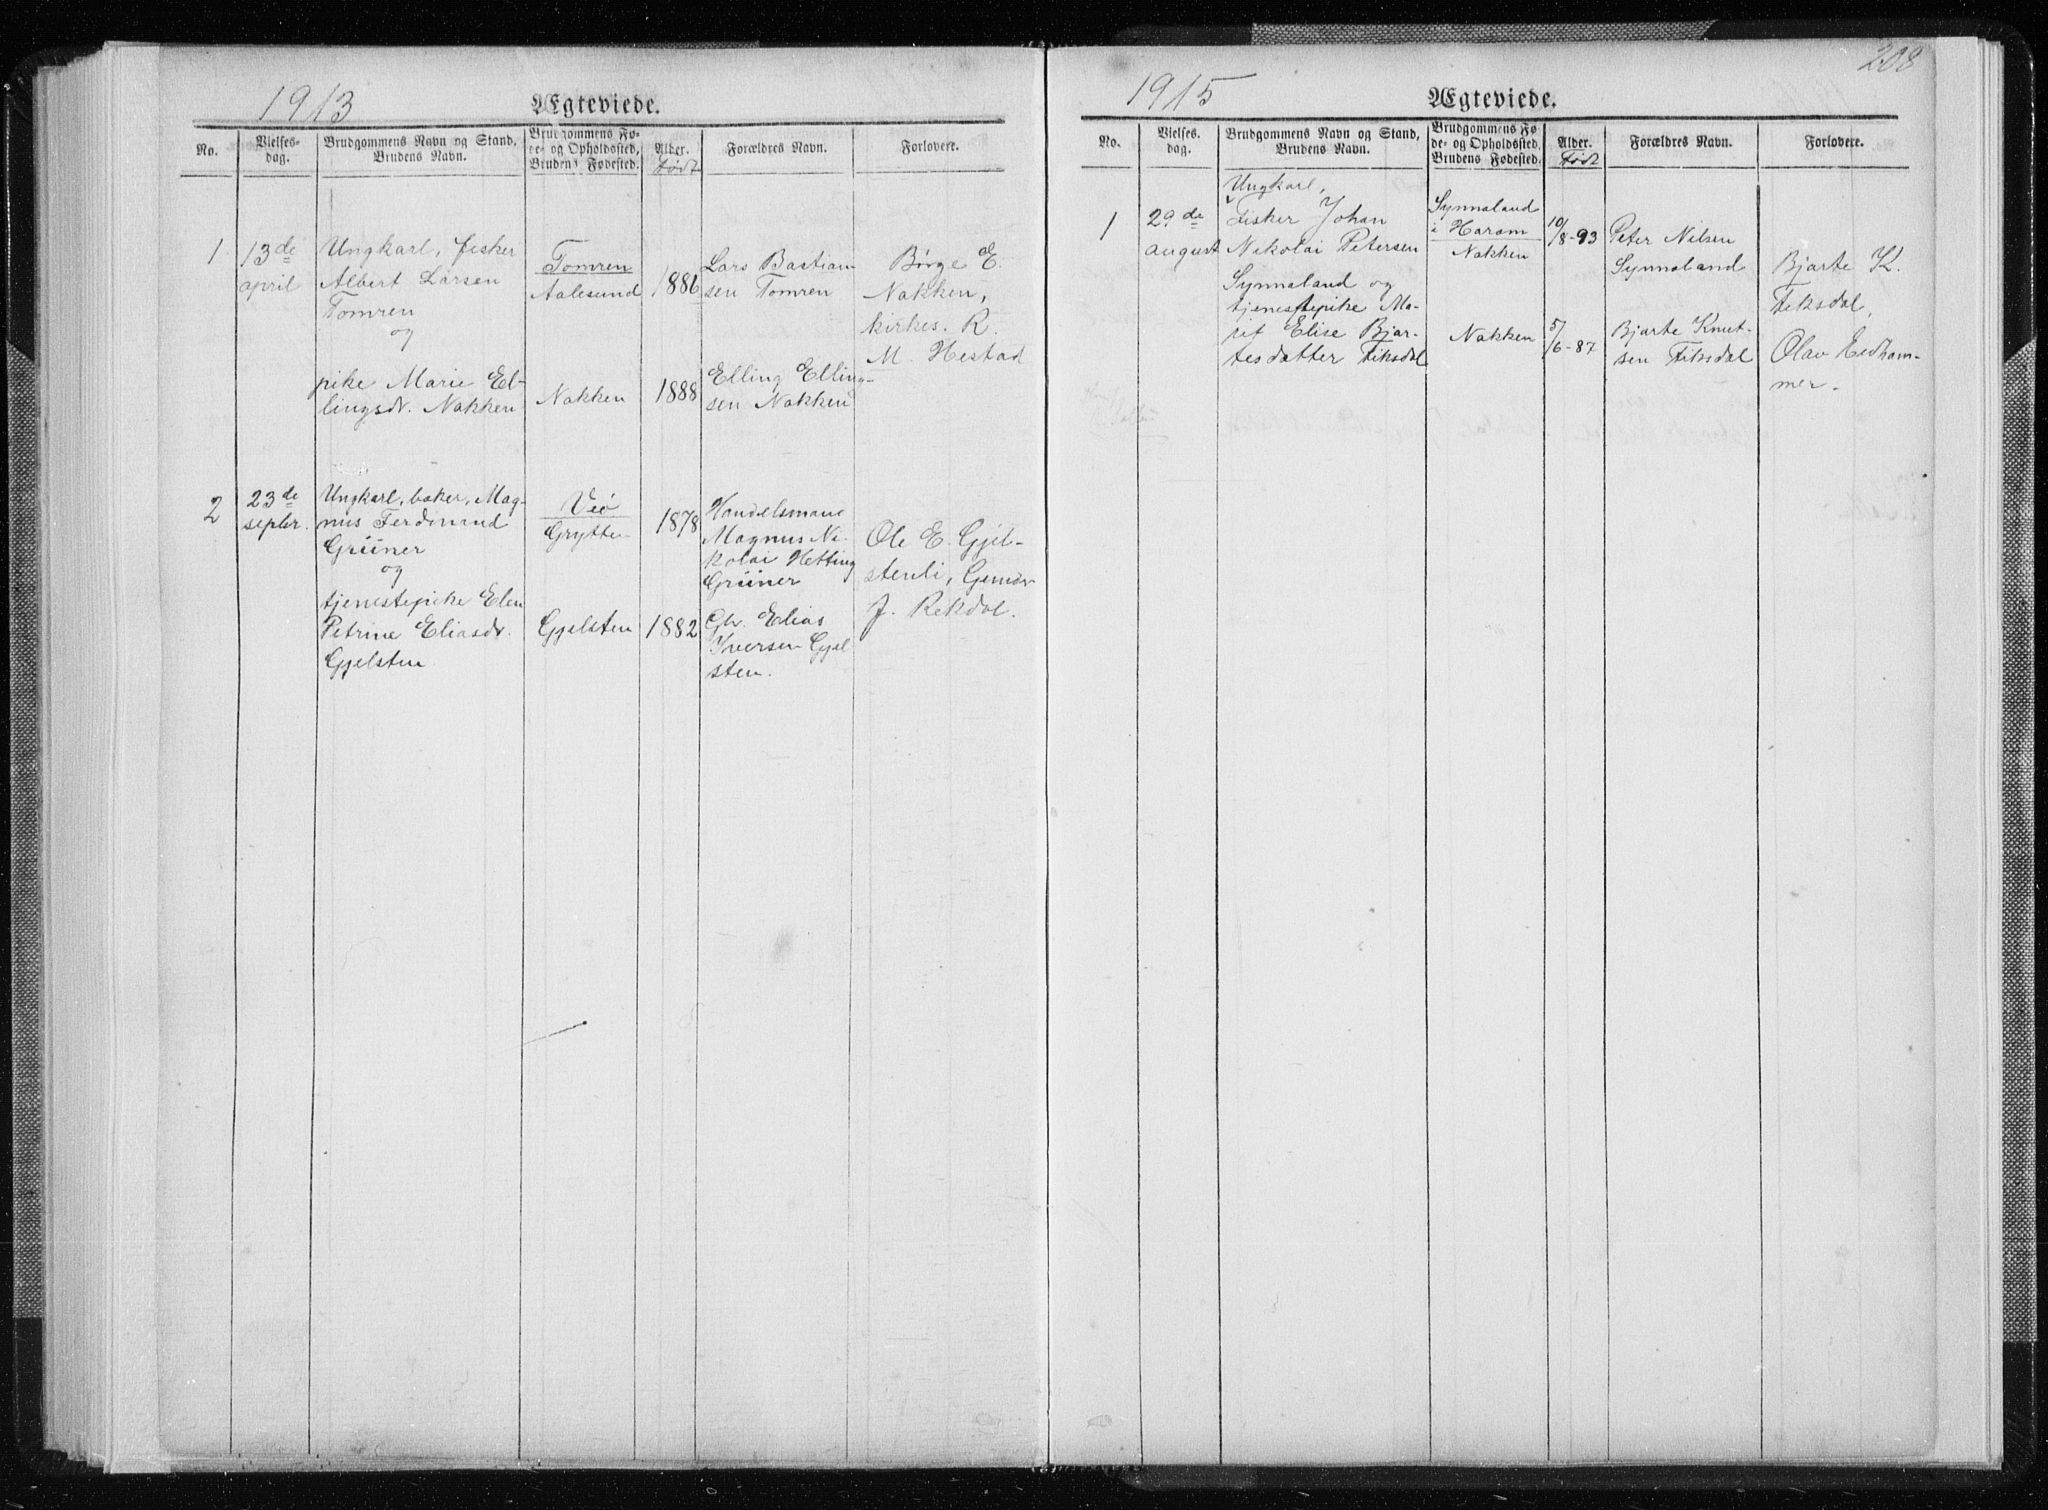 208
1913
Ægteviede.
No.
Vielses-
dag.
Brudgommens Navn og Stand,
Brudens Navn.
Brudgommens Fø-
de- og Opholdssted,
Brudens Fødested.
Alder.
Født
Forældres Navn.
Forlovere.
1.
13de
april
Ungkarl, fisker
Albert Larsen
Tomren
og
pike Marie El-
lingsdr. Nakken
Tomren
Aalesund
Nakken
1886
1888
Lars Bastian-
sen Tomren
Elling Elling-
sen Nakken
Børge E.
Nakken,
kirkes. R.
M. Hestad
2
23de
septbr.
Ungkarl, baker, Mag-
nus Ferdinand
Grüner
og
tjenestepike Elen
Petrine Eliasdr.
Gjelsten
Veø
Grytten
Gjelsten
1878
1882
Handelsmand
Magnus Ni-
kolai Hetting
Grüner
Gbr. Elias
Iversen Gjel
sten.
Ole E. Gjel-
stenli, Gunder
J. Rekdal.
1915
Ægteviede.
No.
Vielses-
dag.
Brudgommens Navn og Stand,
Brudens Navn.
Brudgommens Fø-
de- og Opholdssted,
Brudens Fødested.
Alder.
Født
Forældres Navn.
Forlovere.
1
29de
august
Ungkarl,
Fisker Johan
Nikolai Petersen
Synnaland og
tjenestepike Ma-
rit Elise Bjar-
tesdatter Fiksdal
Synnaland
i Haram
Nakken
Nakken
10/8-93
5/6-87
Peter Nilsen
Synnaland
Bjarte Knut-
sen Fiksdal
Bjarte K.
Fiksdal,
Olav Eidham-
mer.